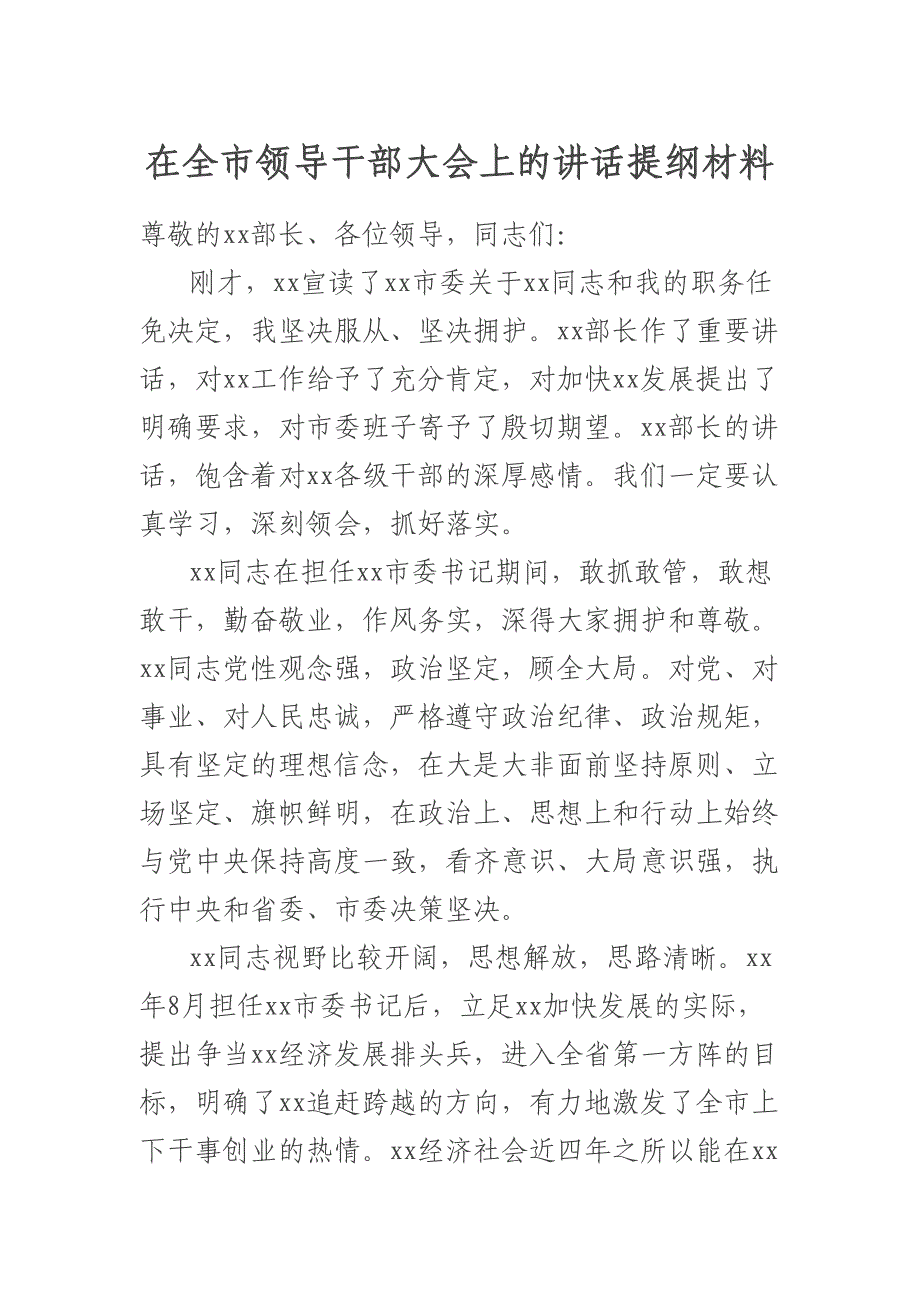 在全市领导干部大会上的讲话提纲材料
尊敬的xx部长、各位领导，同志们：
刚才，xx宣读了xx市委关于xx同志和我的职务任
免决定，我坚决服从、坚决拥护。xx部长作了重要讲
话，对xx工作给予了充分肯定，对加快xx发展提出了
明确要求，对市委班子寄予了殷切期望。xx部长的讲
话，饱含着对xx各级干部的深厚感情。我们一定要认
真学习，深刻领会，抓好落实。
xx同志在担任xx市委书记期间，敢抓敢管，敢想
敢干，勤奋敬业，作风务实，深得大家拥护和尊敬。
xx同志党性观念强，政治坚定，顾全大局。对党、对
事业、对人民忠诚，严格遵守政治纪律、政治规矩，
具有坚定的理想信念，在大是大非面前坚持原则、立
场坚定、旗帜鲜明，在政治上、思想上和行动上始终
与党中央保持高度一致，看齐意识、大局意识强，执
行中央和省委、市委决策坚决。
xx同志视野比较开阔，思想解放，思路清晰。xx
年8月担任xx市委书记后，立足xx加快发展的实际，
提出争当xx经济发展排头兵，进入全省第一方阵的目
标，明确了xx追赶跨越的方向，有力地激发了全市上
下干事创业的热情。xx经济社会近四年之所以能在xx